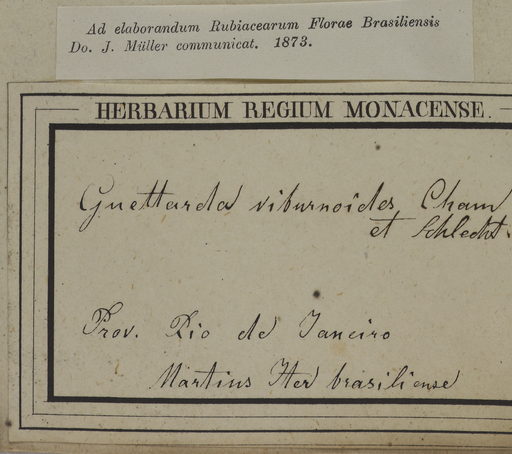 Ad elaborandum Rubiacearum Florae Brasiliensis
Do. J. Müller communicat. 1873.
HERBARIUM REGIUM MONACENSE.
Guettarda viburnoides Cham
et Schlecht.
Prov. Rio de Janeiro
Martius Iter brasiliense